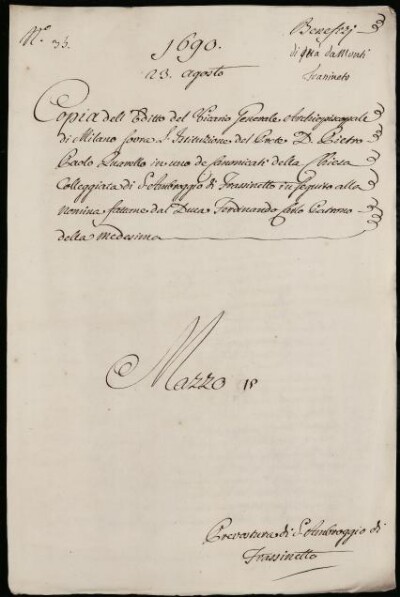 N.º 35.
1690.
23. agosto
Benefizj
di qua da Monti
Frasineto
Copia dell Editto del Vicario Generale Archiepiscopale
di Milano sovra l'Istituzione del Prete D. Pietro
Paolo Quarello in uno de Canonicati della Chiesa
Collegiata di S. Ambroggio di Frassinetto in seguito alla
nomina fattene dal Duca Ferdinando Carlo Patrono
della medesima
Mazzo 1º
Prevostura di S. Ambroggio di
Frassinetto